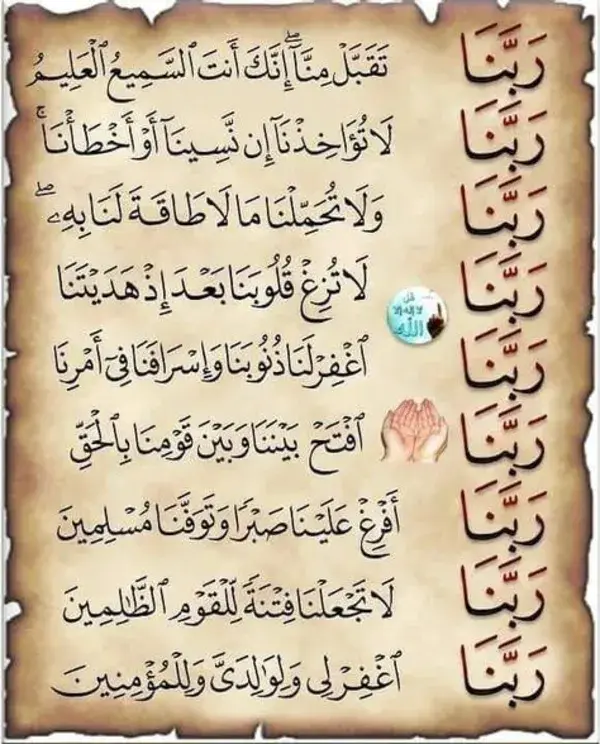 رَبَّنَا تَقَبَّلْ مِنَّآ ۖ إِنَّكَ أَنتَ ٱلسَّمِيعُ ٱلْعَلِيمُ
رَبَّنَا لَا تُؤَاخِذْنَآ إِن نَّسِينَآ أَوْ أَخْطَأْنَا ۚ
رَبَّنَا وَلَا تُحَمِّلْنَا مَا لَا طَاقَةَ لَنَا بِهِۦ ۖ
رَبَّنَا لَا تُزِغْ قُلُوبَنَا بَعْدَ إِذْ هَدَيْتَنَا
قل
لا إله إلا
الله
رَبَّنَا ٱغْفِرْ لَنَا ذُنُوبَنَا وَإِسْرَافَنَا فِىٓ أَمْرِنَا
رَبَّنَا ٱفْتَحْ بَيْنَنَا وَبَيْنَ قَوْمِنَا بِٱلْحَقِّ
رَبَّنَا أَفْرِغْ عَلَيْنَا صَبْرًا وَتَوَفَّنَا مُسْلِمِينَ
رَبَّنَا لَا تَجْعَلْنَا فِتْنَةً لِّلْقَوْمِ ٱلظَّـٰلِمِينَ
رَبَّنَا ٱغْفِرْ لِى وَلِوَٰلِدَىَّ وَلِلْمُؤْمِنِينَ